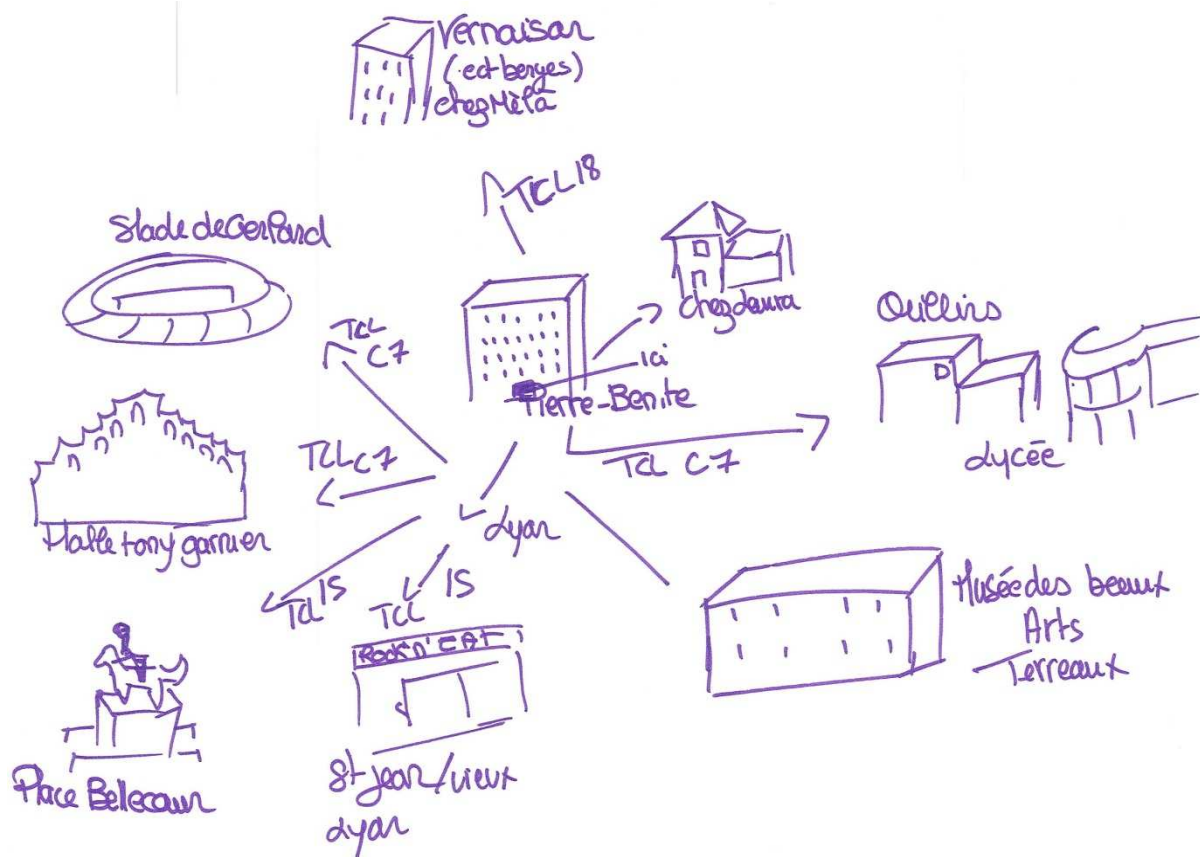 Vernaison
(est berges)
chez Méla
TCL 18
Stade de Gerland
chez Laura
Oullins
TCL
C7
ici
Pierre-Benite
Lycée
TCL C7
TCL C7
Halle tony garnier
Lyon
TCL 15
TCL 15
Musée des beaux
Arts
Terreaux
Rock n' EAT
Place Bellecour
St jean/vieux
Lyon